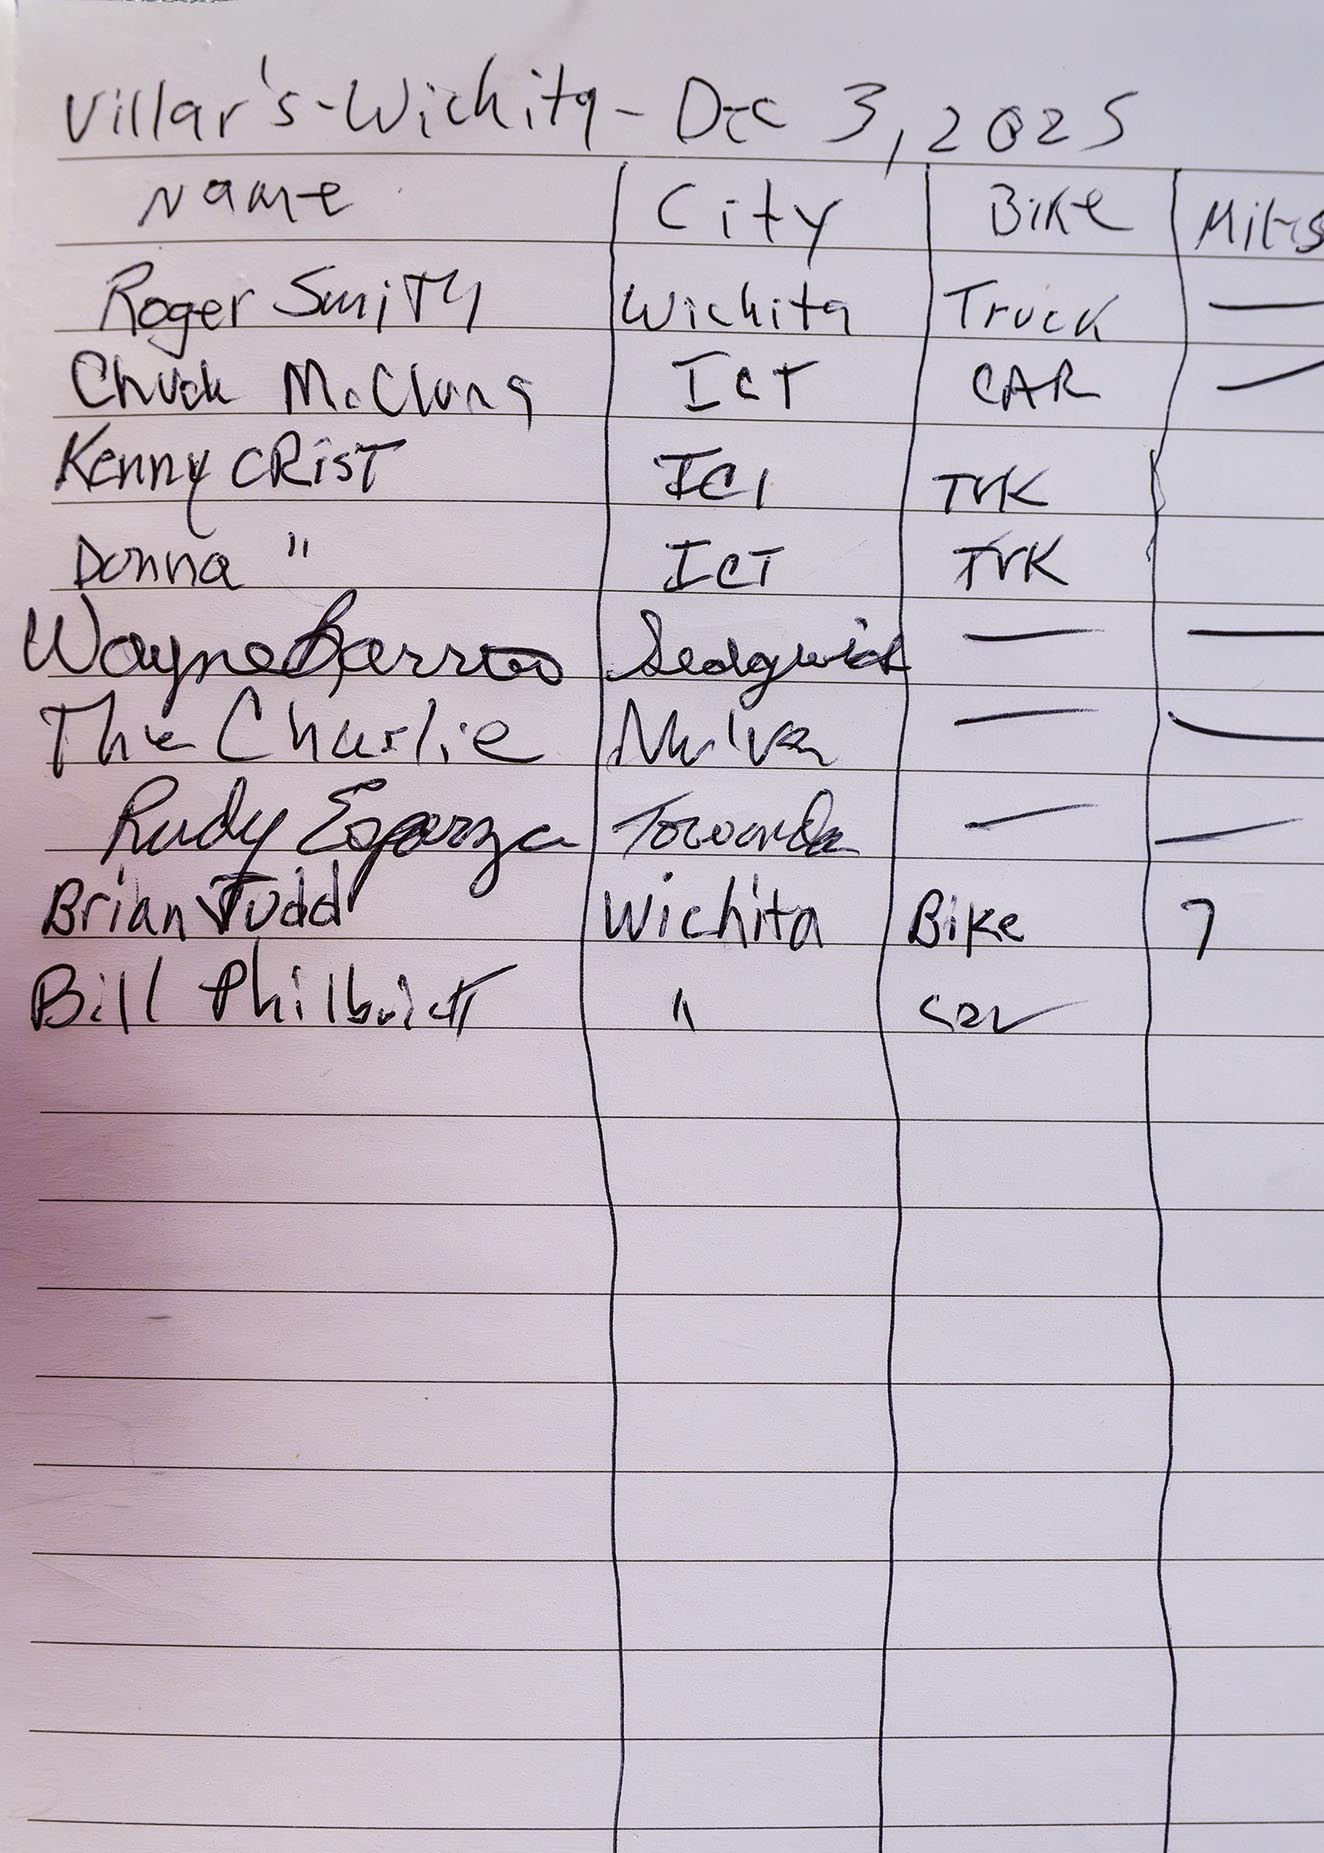 Villar's-Wichita- Dec 3, 2025
Name City Bike Miles
Roger Smith Wichita Truck —
Chuck McClung ICT CAR —
Kenny CRisT ICT TrK
Donna " ICT TrK
Wayne Sedgwick — —
The Charlie Mulva — —
Rudy Esparza Towanda — —
Brian Judd Wichita Bike 7
Bill Philbrick " car